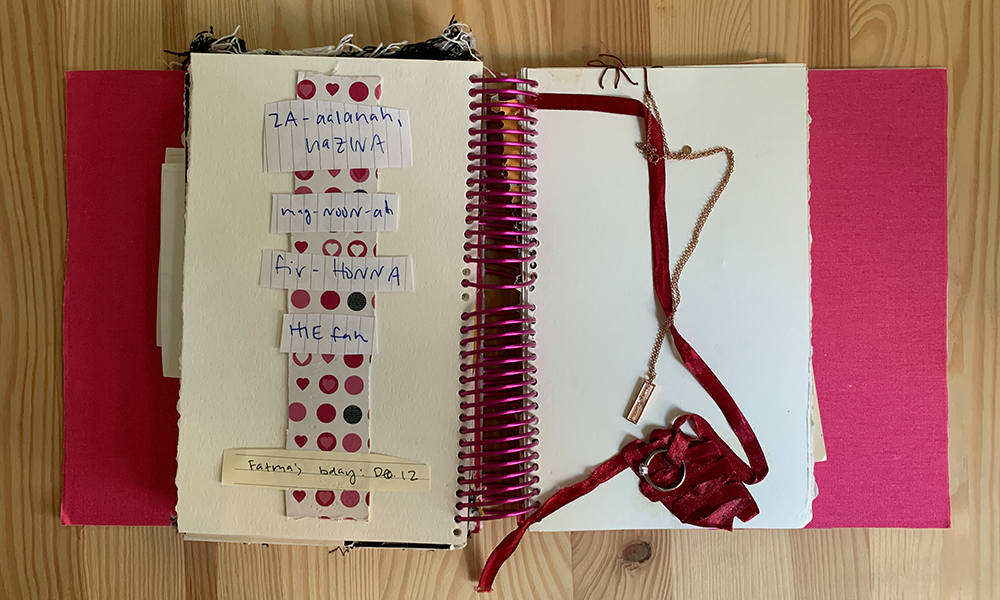 ZA-aalanah,
nazINA
mag-NOON-ah
fir-HONNA
HIE fah
Fatma's bday: Dec 12